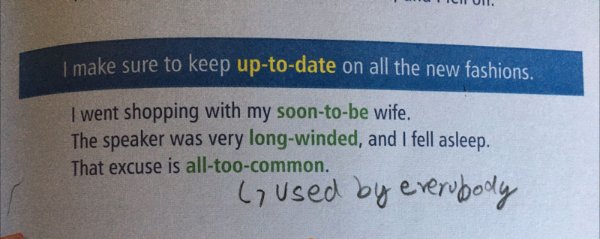 I make sure to keep up-to-date on all the new fashions.
I went shopping with my soon-to-be wife.
The speaker was very long-winded, and I fell asleep.
That excuse is all-too-common.
↳ used by everybody